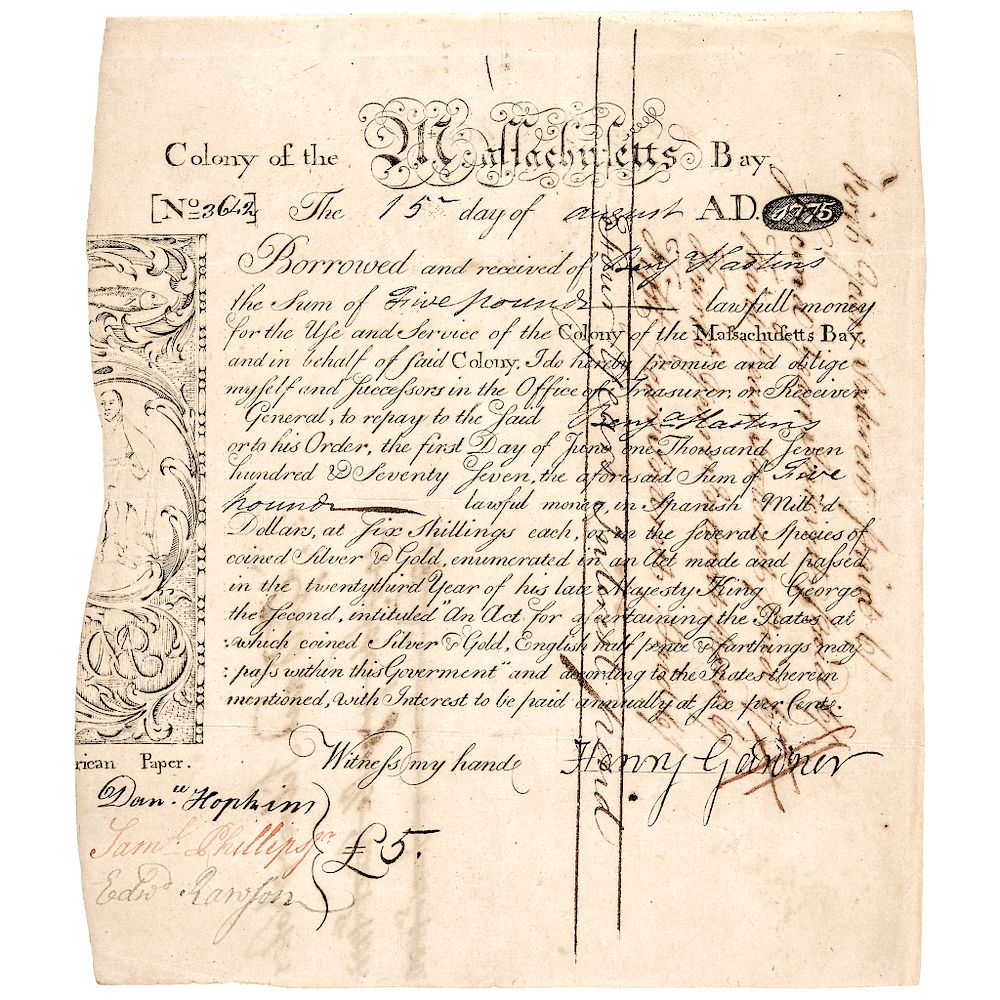 Colony of the Maſsachuſetts Bay.
[No 3642] The 15th day of august A.D. 1775
Borrowed and received of Benj Hastins
the Sum of Five pounds lawfull money
for the Uſe and Service of the Colony of the Maſsachuſetts Bay,
and in behalf of ſaid Colony, I do hereby promise and oblige
myſelf and Succeſsors in the Office of Treasurer, or Receiver
General, to repay to the Said Benj Hastins
or to his Order, the firſt Day of June, one Thouſand Seven
hundred & Seventy Seven, the aforesaid Sum of Five
pounds lawful money, in Spanish Mill'd
Dollars, at ſix Shillings each, or in the ſeveral Species of
coined Silver & Gold, enumerated in an Act made and paſsed
in the twentythird Year of his late Majesty King George
the Second, intituled "An Act for ascertaining the Rates at
which coined Silver & Gold, Engliſh half pence & farthings may
paſs within this Goverment" and according to the Rates therein
mentioned, with Interest to be paid annually at ſix per Cent.
rican Paper.
Witneſs my hand Henry Gardner
Danll Hopkins
Saml Phillips jr
Edwd Rawſon
£5.